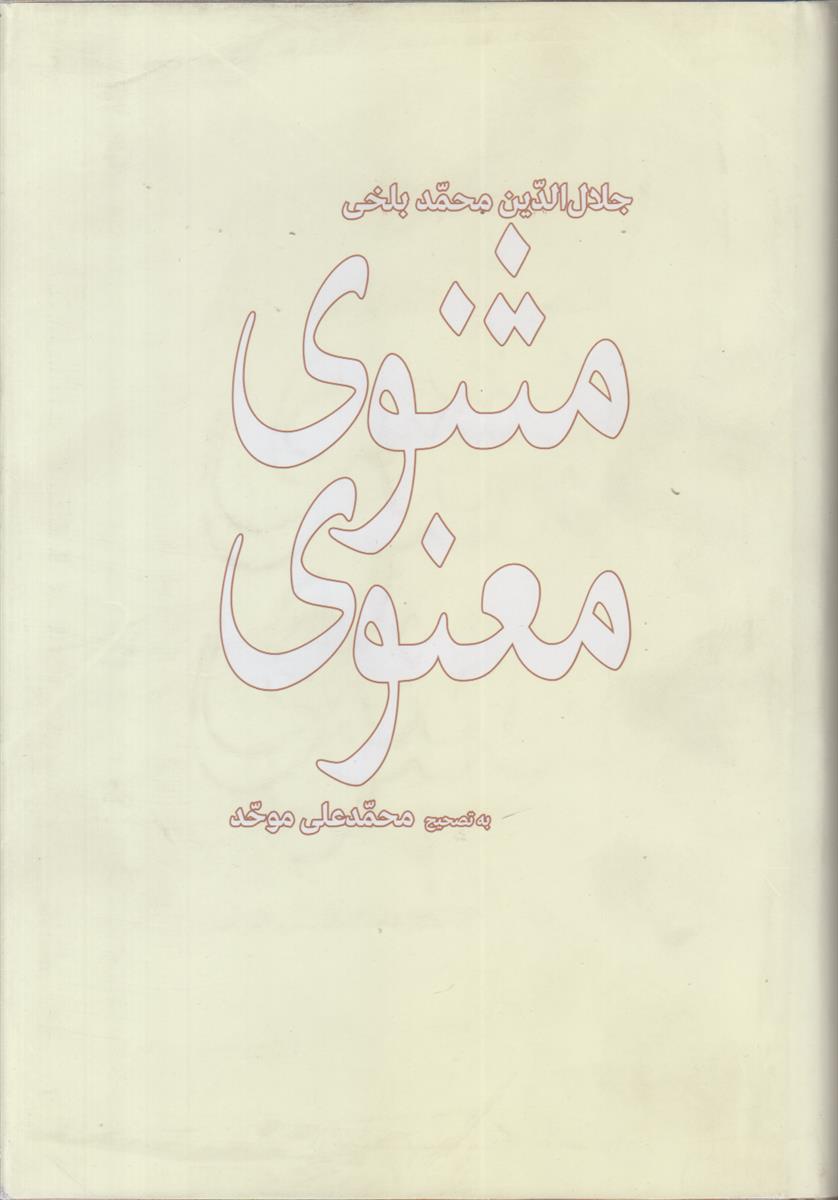 جلال‌الدّین محمّد بلخی
مثنوی
معنوی
به تصحیح محمّدعلی موحّد